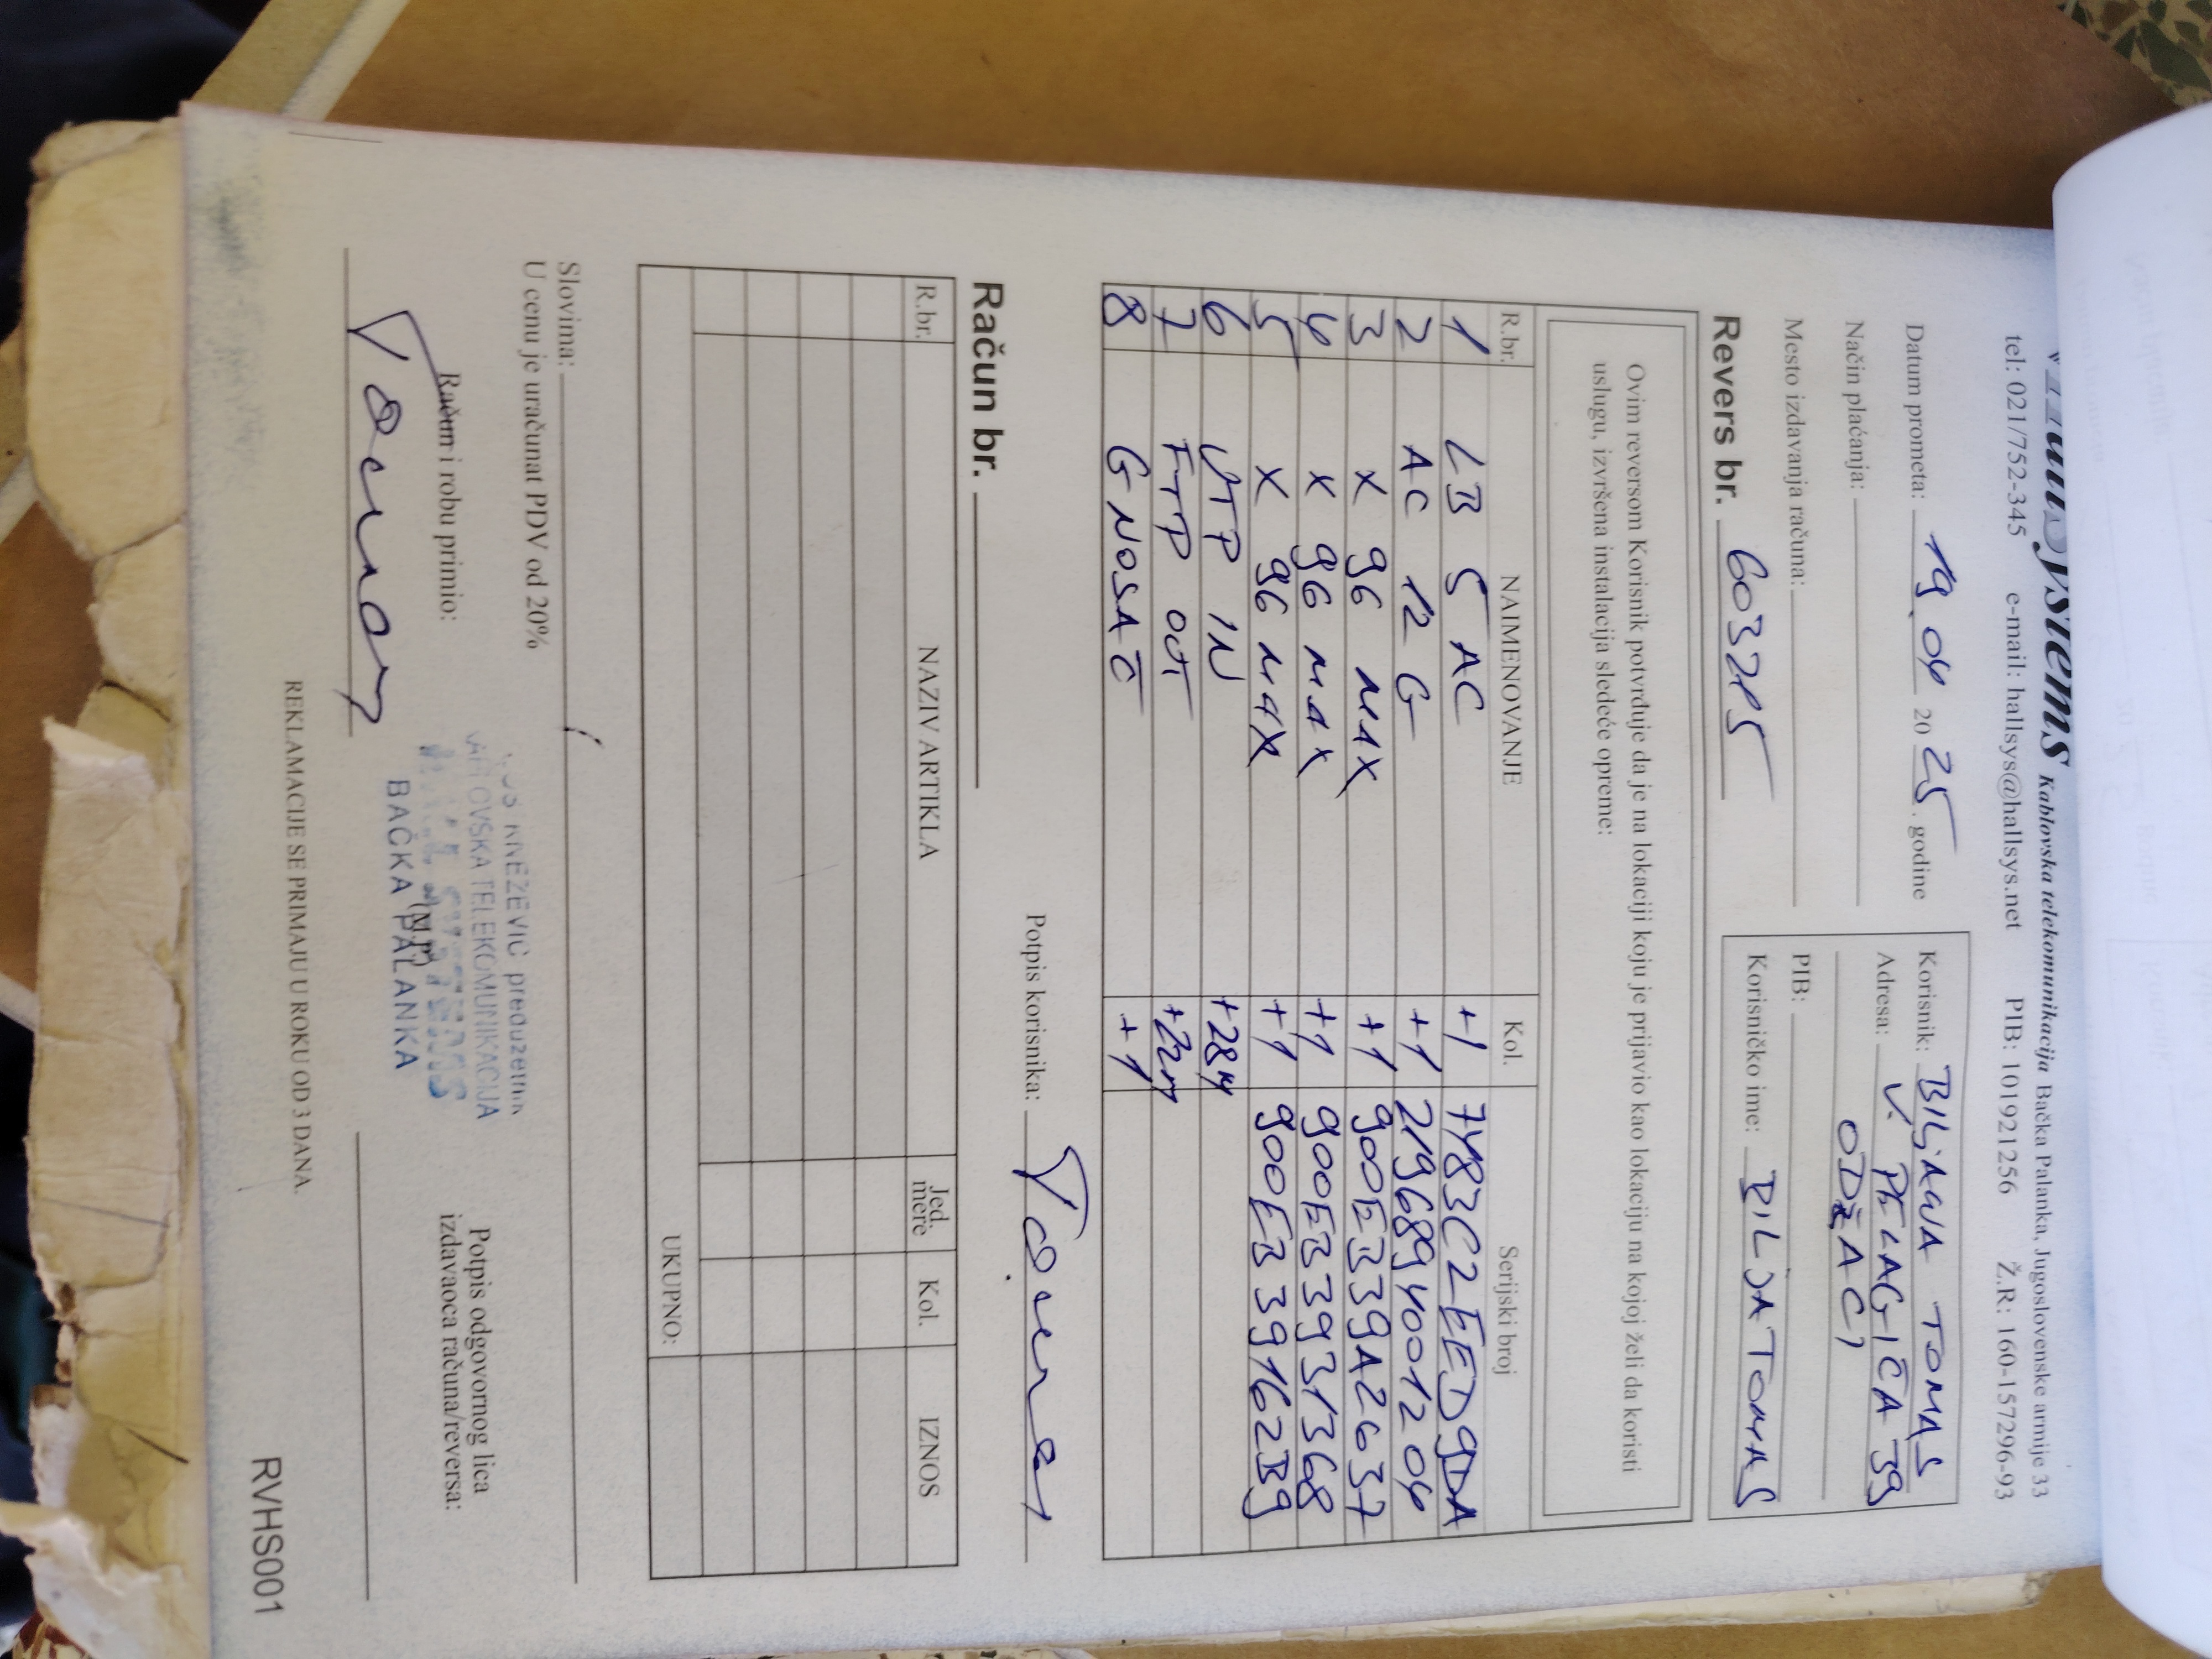 HallSystems Kablovska telekomunikacija Bačka Palanka, Jugoslovenske armije 33
tel: 021/752-345 e-mail: hallsys@hallsys.net PIB: 101921256 Ž.R: 160-157296-93
Datum prometa: 19.04 2025. godine
Način plaćanja:
Mesto izdavanja računa:
Revers br. 603215
Korisnik: BILJANA TOMAS
Adresa: V. PELAGIĆA 39
ODŽACI
PIB:
Korisničko ime: BILJATOMAS
Ovim reversom Korisnik potvrđuje da je na lokaciji koju je prijavio kao lokaciju na kojoj želi da koristi
uslugu, izvršena instalacija sledeće opreme:
R.br. NAIMENOVANJE Kol. Serijski broj
1 LB 5 AC +1 7483C2EED9DA
2 AC 12 G +1 2196894001204
3 X 96 MAX +1 900EB39A2637
4 X 96 MAX +1 900EB3931368
5 X 96 MAX +1 900EB39162B9
6 UTP IN +28m
7 FTP OUT +22m
8 G NOSAČ +1
Potpis korisnika:
Račun br.
R.br. NAZIV ARTIKLA Jed. mere Kol. IZNOS
UKUPNO:
Slovima: /
U cenu je uračunat PDV od 20%
Račun i robu primio:
KNEŽEVIĆ preduzetnik
TELEKOMUNIKACIJA
HALL SYSTEMS
(M.P.)
BAČKA PALANKA
Potpis odgovornog lica
izdavaoca računa/reversa:
REKLAMACIJE SE PRIMAJU U ROKU OD 3 DANA.
RVHS001